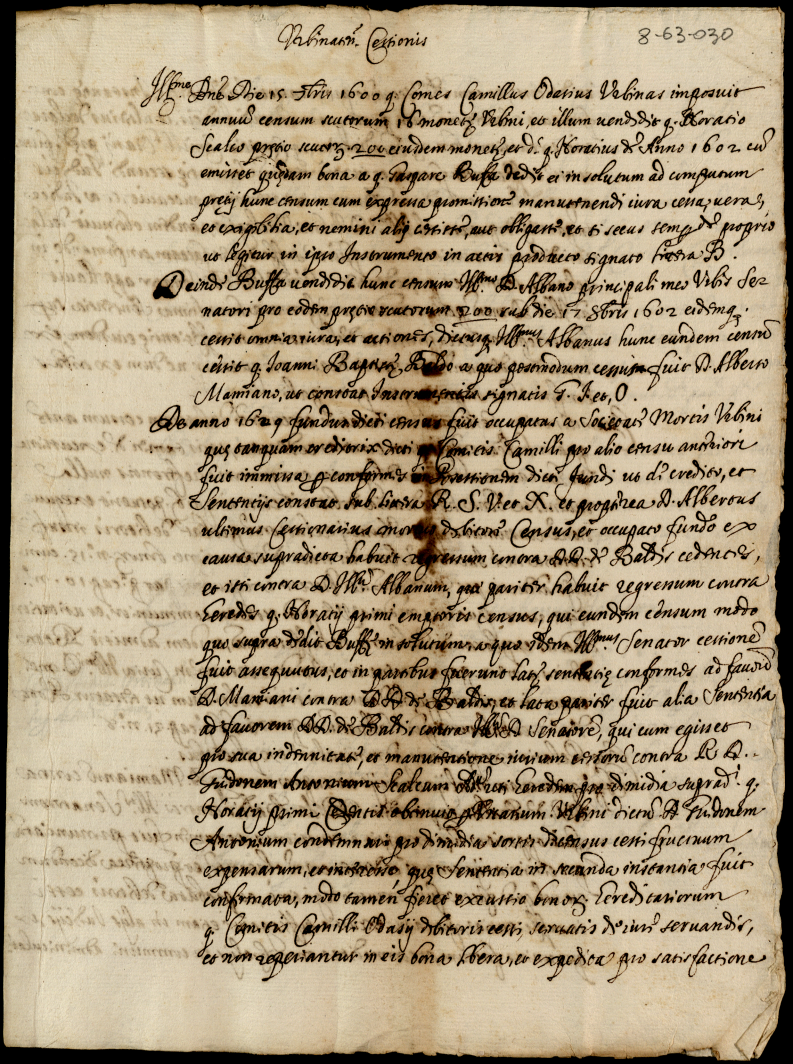 Urbinaten. Cessionis
8-63-030
Ill.me Dne Die 15. Xbris 1600 q. Comes Camillus Odasius Urbinas imposuit
annuū censum scutorum 16 monetę Urbini, et illum vendidit q. Horatio
Scaleo pretio scutor. 200 eiusdem monetę, et d. q. Horatius de Anno 1602 cū
emisset quędam bona a q. Gaspare Buffa dedit ei in solutum ad computum
pretij hunc censum cum expressa promissione manutenendi iura cessa, vera,
et exigibilia, et nemini alij cessisse, aut obligasse, et si secus temp.e proprio
ut legitur in ipso Instrumento in actis producto signato littera B.
Deinde Buffa vendidit hunc censum Ill.mo D. Albano principali meo Urbis Se-
natori pro eodem pretio scutorum 200 sub die 17 Xbris 1602 eidemq.
cessit omnia iura, et actiones, dictusq. Ill.mus Albanus hunc eundem censū
cessit q. Ioanni Baptistę Baldo a quo postmodum cessus fuit D. Alberto
Mamiano, ut constat Instrumentis signatis G. I. et, O.
De anno 1629 fundus dicti census fuit occupatus a Societate Mortis Urbini
quę tanquam creditrix dicti q. Comitis Camilli pro alio censu anteriori
fuit immissa p conformes in Possessionem dicti fundi ut d. credito, et
Sententijs constat sub littera R. S. V. et X. et propterea D. Albertus
ultimus Cessionarius debitore Census, et occupato fundo ex
causa supradicta habuit regressum contra DD. de Baldis cedentes,
et isti contra D. Ill.m Albanum, qui pariter habuit regressum contra
heredes q. Horatij primi emptoris census, qui eundem censum modo
quo supra dedit Buffę in solutum, a quo idem Ill.mus Senator cessionē
fuit assequutus, et in partibus fuerunt latę sententię conformes ad favorē
D. Mamiani contra DD. de Baldis, et lata pariter fuit alia Sententia
ad favorem DD. de Baldis contra Ill. D. Senatorē, qui cum egisset
pro sua indennitate, et manutentione iurium cessorū contra R. D.
Fudonem Antonium Scaleum uti heredem pro dimidia suprad.i q.
Horatij primi Cedentis obtinuit Urbini dictū D. Fudonem
Antonium condemnari pro dimidia sortis census cessi fructuum
expensarum, et interesse, quę Sententia in secunda instantia fuit
confirmata, modo tamen fieret excussio bonor. hereditariorum
q. Comitis Camilli Odasij debitoris cessi, servatis de iure servandis,
et non reperiantur in eis bona libera, et expedita pro satisfactione